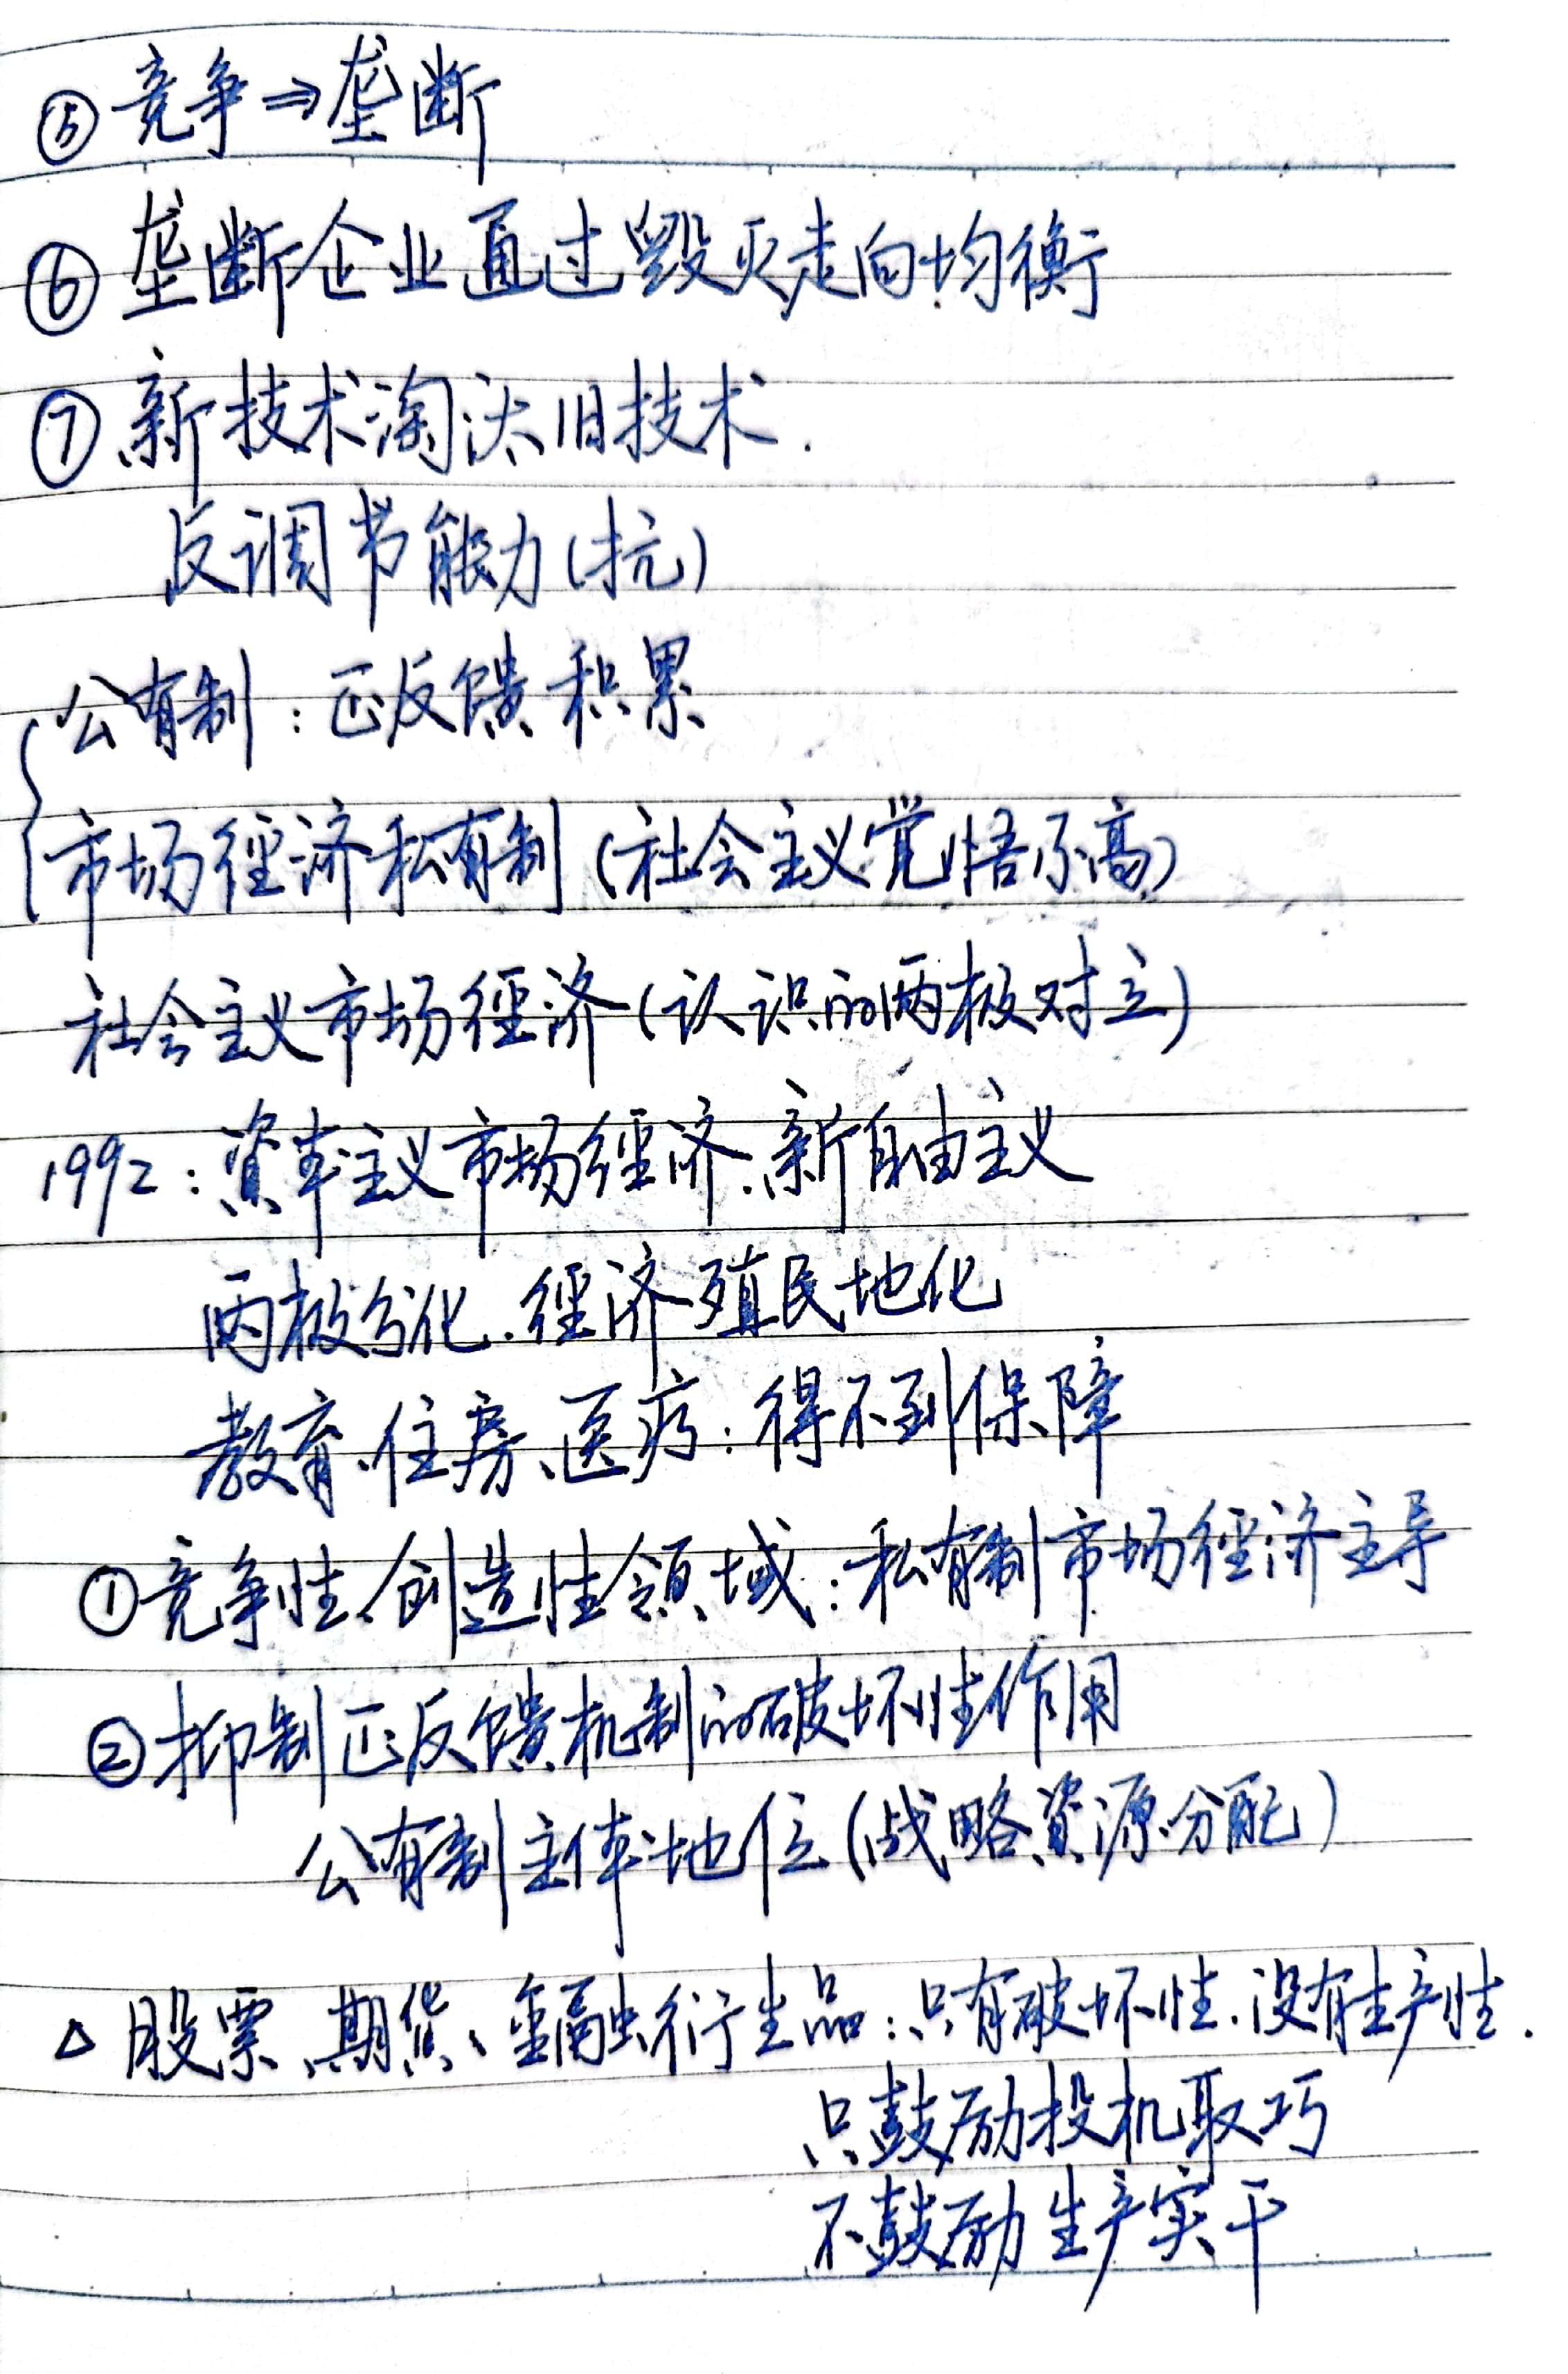 ⑤ 竞争⇒垄断
⑥ 垄断企业通过毁灭走向均衡
⑦ 新技术淘汰旧技术.
反调节能力(抗)
公有制：正反馈积累
市场经济私有制(社会主义觉悟不高)
社会主义市场经济(认识的两极对立)
1992：资本主义市场经济、新自由主义
两极分化、经济殖民地化
教育、住房、医疗：得不到保障
①竞争性、创造性领域：私有制市场经济主导
②抑制正反馈机制的破坏性作用
公有制主体地位(战略资源分配)
△ 股票、期货、金融衍生品：只有破坏性、没有生产性.
只鼓励投机取巧
不鼓励生产实干